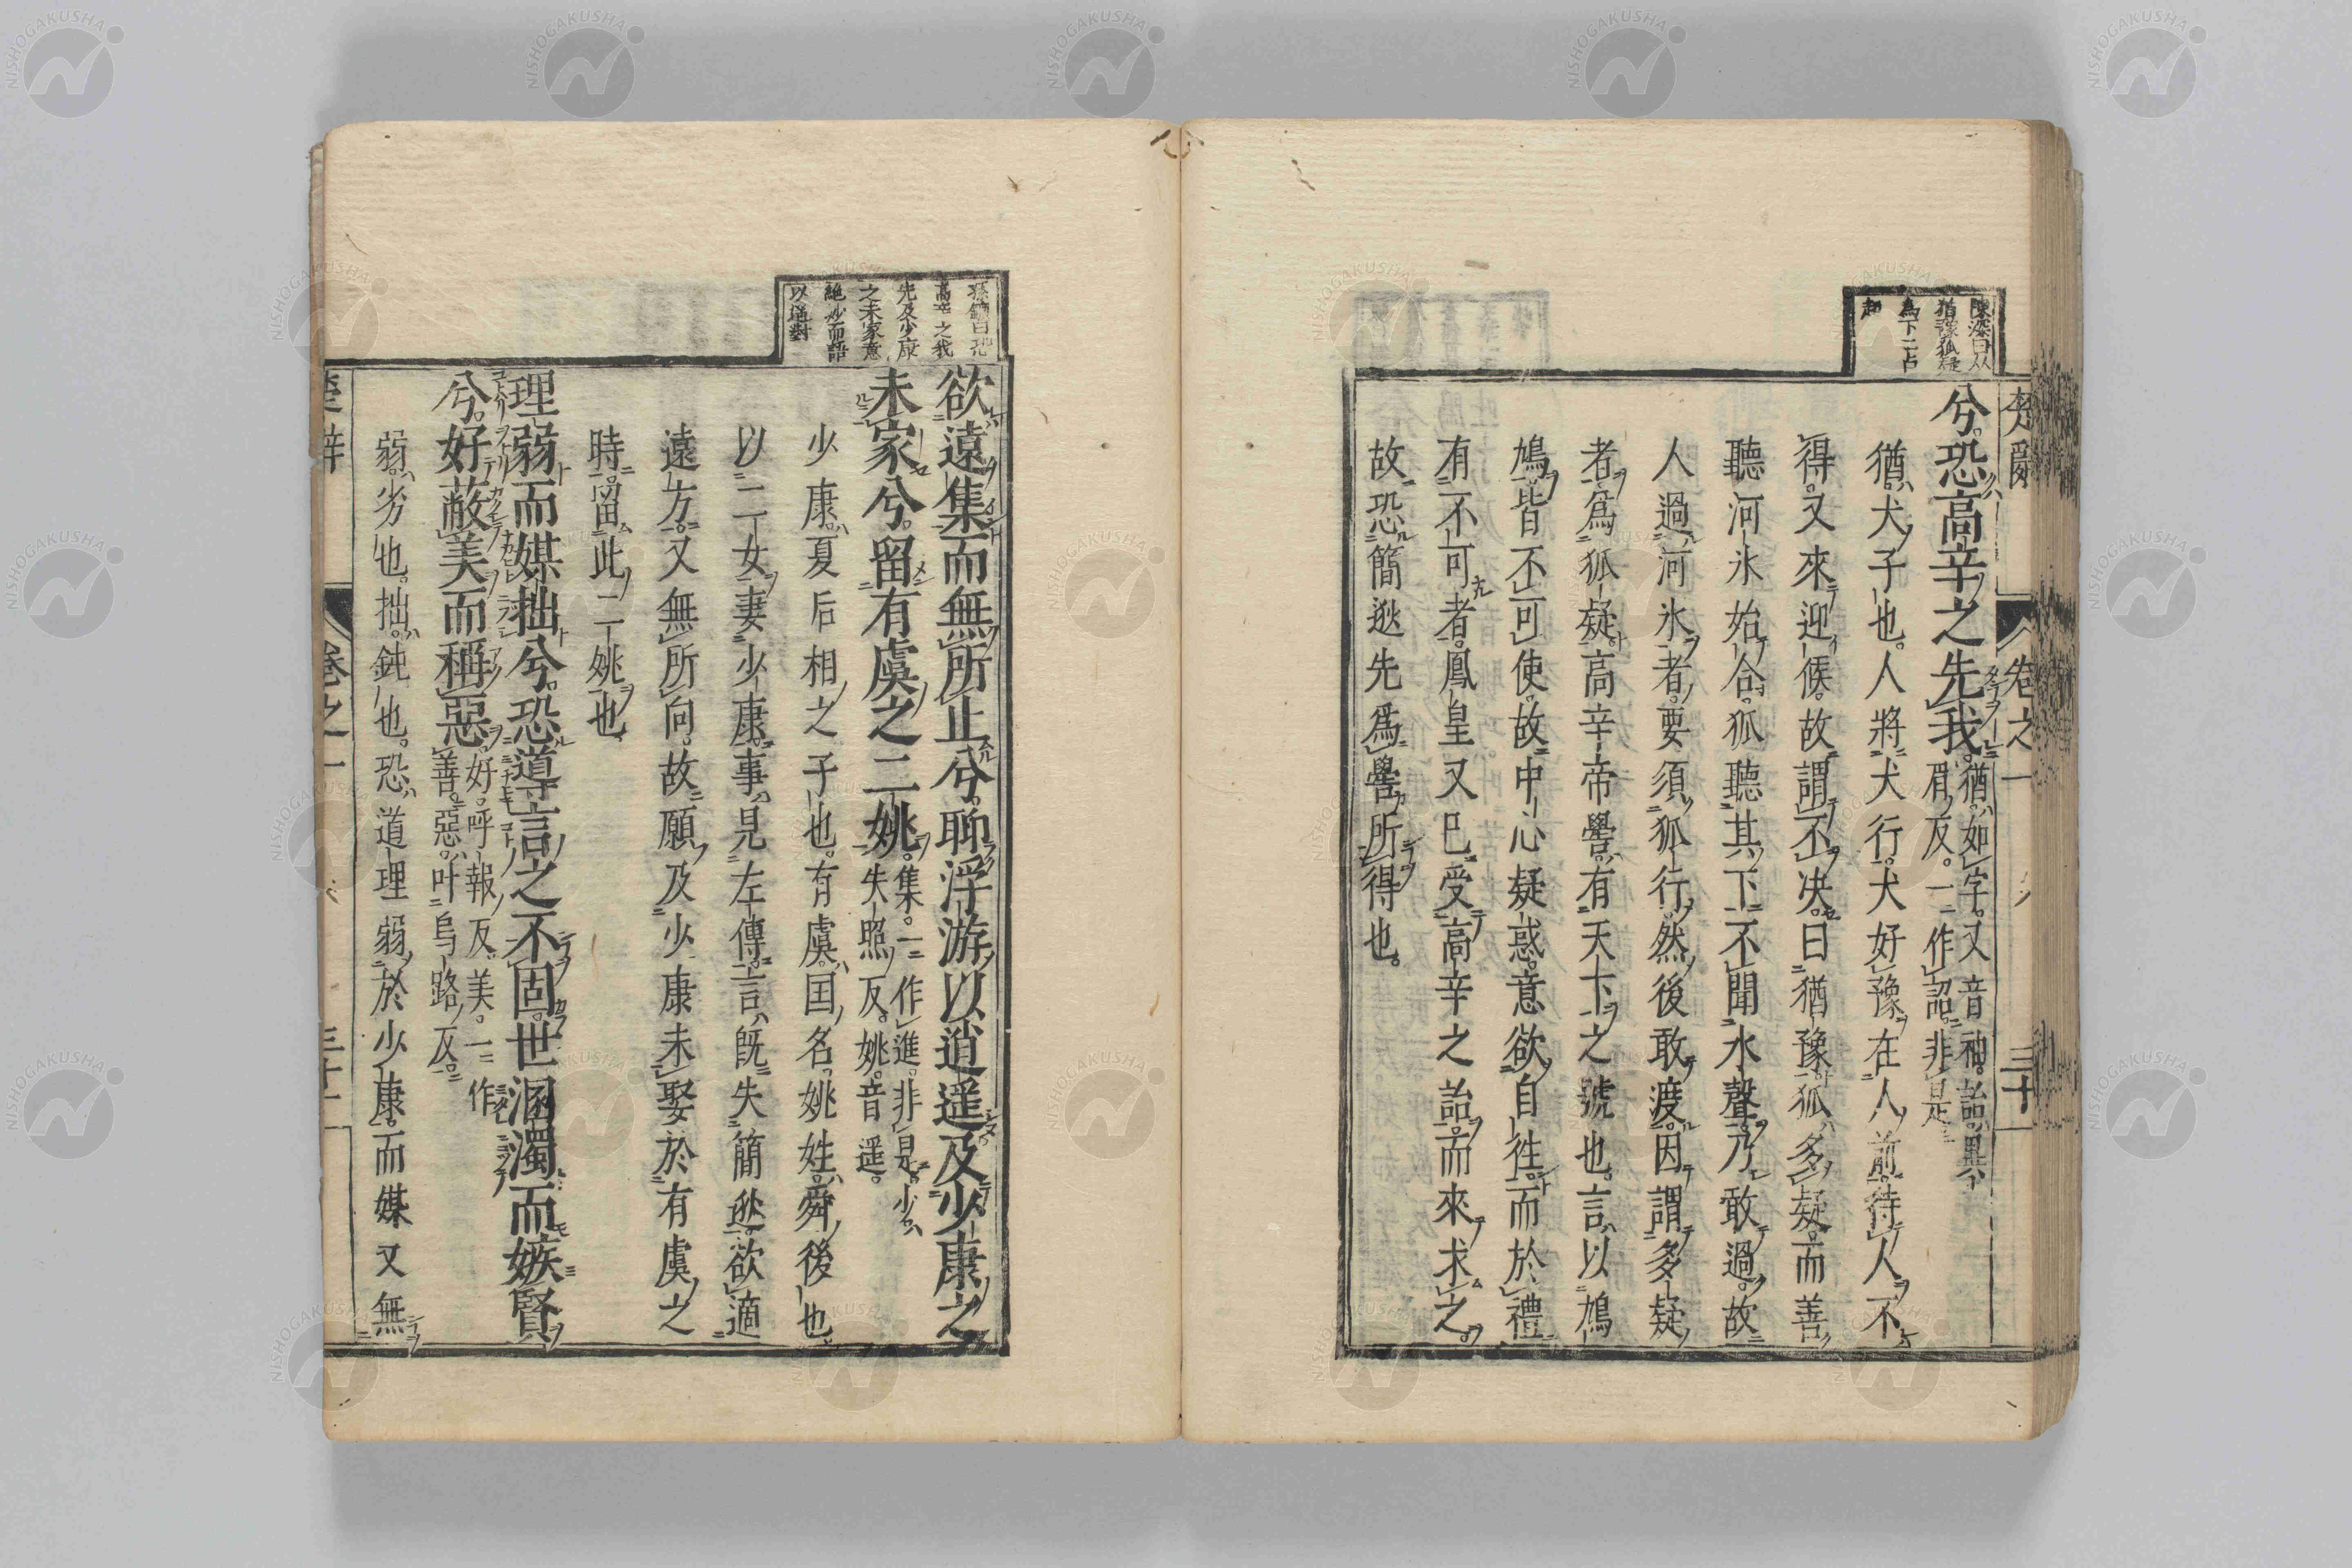 楚辭 卷之一 三十一
陳深曰以
猶豫狐疑
為下二占
起
兮。恐高辛之先我。猶。如字。又音袖。詒。異。
眉反。一作詔。非是
猶。犬子也。人將犬行。犬好豫在人前。待人不
得。又來迎候。故謂不決曰猶豫。狐多疑。而善
聽河氷始合。狐聽其下。不聞水聲。乃敢過。故
人過河氷者。要須狐行。然後敢渡。因謂多疑
者。爲狐疑。高辛帝嚳。有天下之號也。言以鴆
鳩。皆不可使。故中心疑惑。意欲自往。而於禮
有不可者。鳳皇又已受高辛之詒。而來求之。
故恐簡逖先爲嚳所得也。
孫鑛曰恐
高辛之我
先及少康
之未家意
絶妙而語
以遥對
欲遠集而無所止兮。聊浮游以逍遥。及少康之
未家兮。留有虞之二姚。集。一作進。非是。少。
失照反。姚。音遥。
少康。夏后相之子也。有虞。國名。姚姓。舜後也。
以二女妻少康。事見左傳。言既失簡逖。欲適
遠方。又無所向。故願及少康未娶於有虞之
時。留此二姚也
理弱而媒拙兮。恐導言之不固。世溷濁而嫉賢
兮。好蔽美而稱惡。好。呼報反。美。一作
善。惡。叶烏路反。
弱。劣也。拙。鈍也。恐道理弱於少康。而媒又無
楚辭 卷之一 三十一